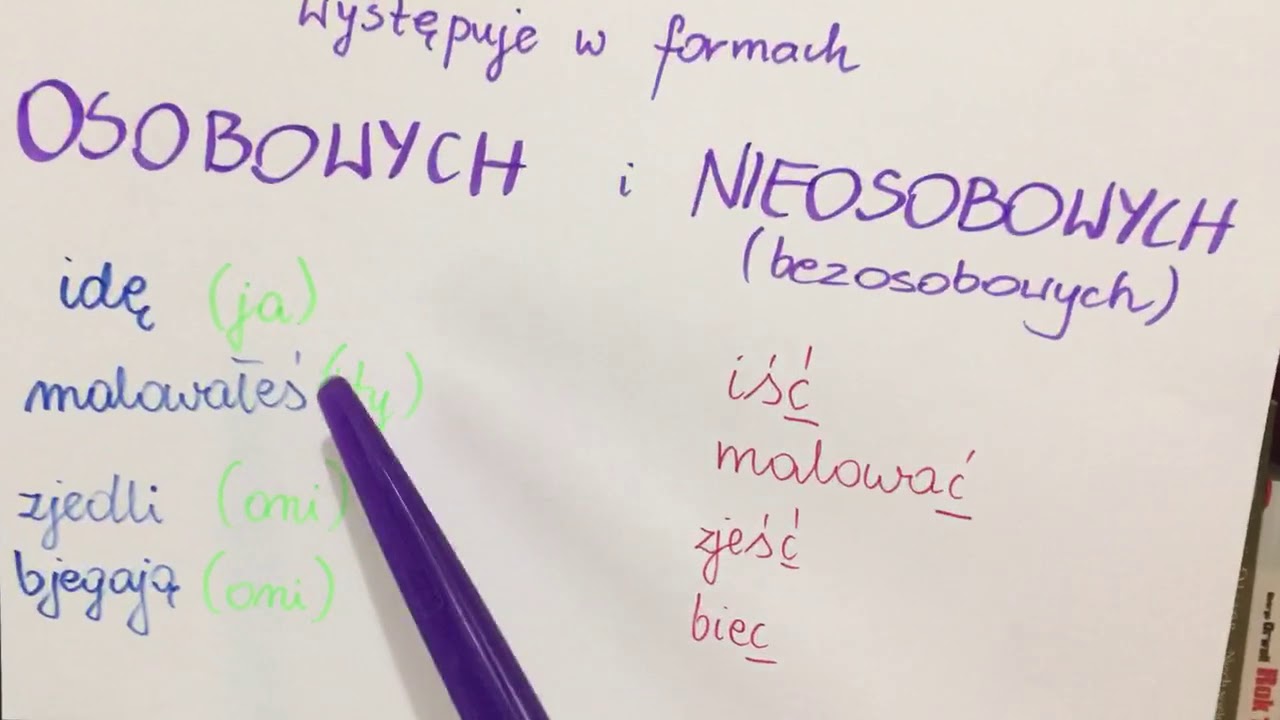 występuje w formach
OSOBOWYCH i NIEOSOBOWYCH
(bezosobowych)
idę (ja)
malowałeś (ty)
zjedli (oni)
bjegają (oni)
iść
malować
zjeść
biec
Rok